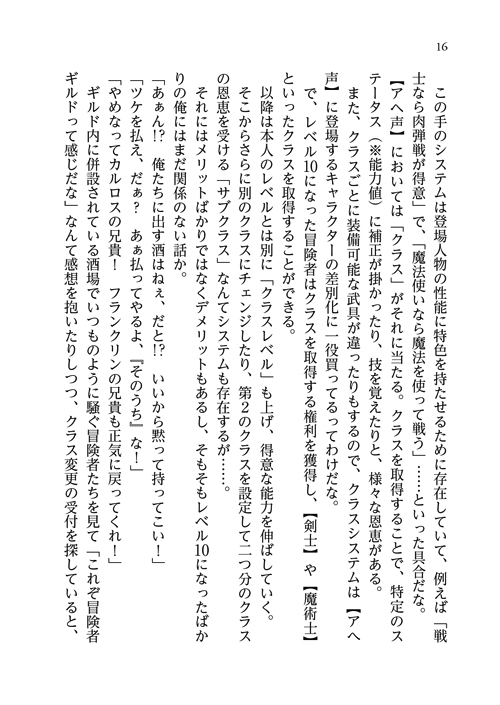 16
この手のシステムは登場人物の性能に特色を持たせるために存在していて、例えば「戦
士なら肉弾戦が得意」で、「魔法使いなら魔法を使って戦う」……といった具合だな。
【アヘ声】においては「クラス」がそれに当たる。クラスを取得することで、特定のス
テータス（※能力値）に補正が掛かったり、技を覚えたりと、様々な恩恵がある。
また、クラスごとに装備可能な武具が違ったりもするので、クラスシステムは【アヘ
声】に登場するキャラクターの差別化に一役買ってるってわけだな。
で、レベル10になった冒険者はクラスを取得する権利を獲得し、【剣士】や【魔術士】
といったクラスを取得することができる。
以降は本人のレベルとは別に「クラスレベル」も上げ、得意な能力を伸ばしていく。
そこからさらに別のクラスにチェンジしたり、第２のクラスを設定して二つ分のクラス
の恩恵を受ける「サブクラス」なんてシステムも存在するが……。
それにはメリットばかりではなくデメリットもあるし、そもそもレベル10になったばか
りの俺にはまだ関係のない話か。
「あぁん!?　俺たちに出す酒はねぇ、だと!?　いいから黙って持ってこい！」
「ツケを払え、だぁ？　あぁ払ってやるよ、『そのうち』な！」
「やめなってカルロスの兄貴！　フランクリンの兄貴も正気に戻ってくれ！」
ギルド内に併設されている酒場でいつものように騒ぐ冒険者たちを見て「これぞ冒険者
ギルドって感じだな」なんて感想を抱いたりしつつ、クラス変更の受付を探していると、